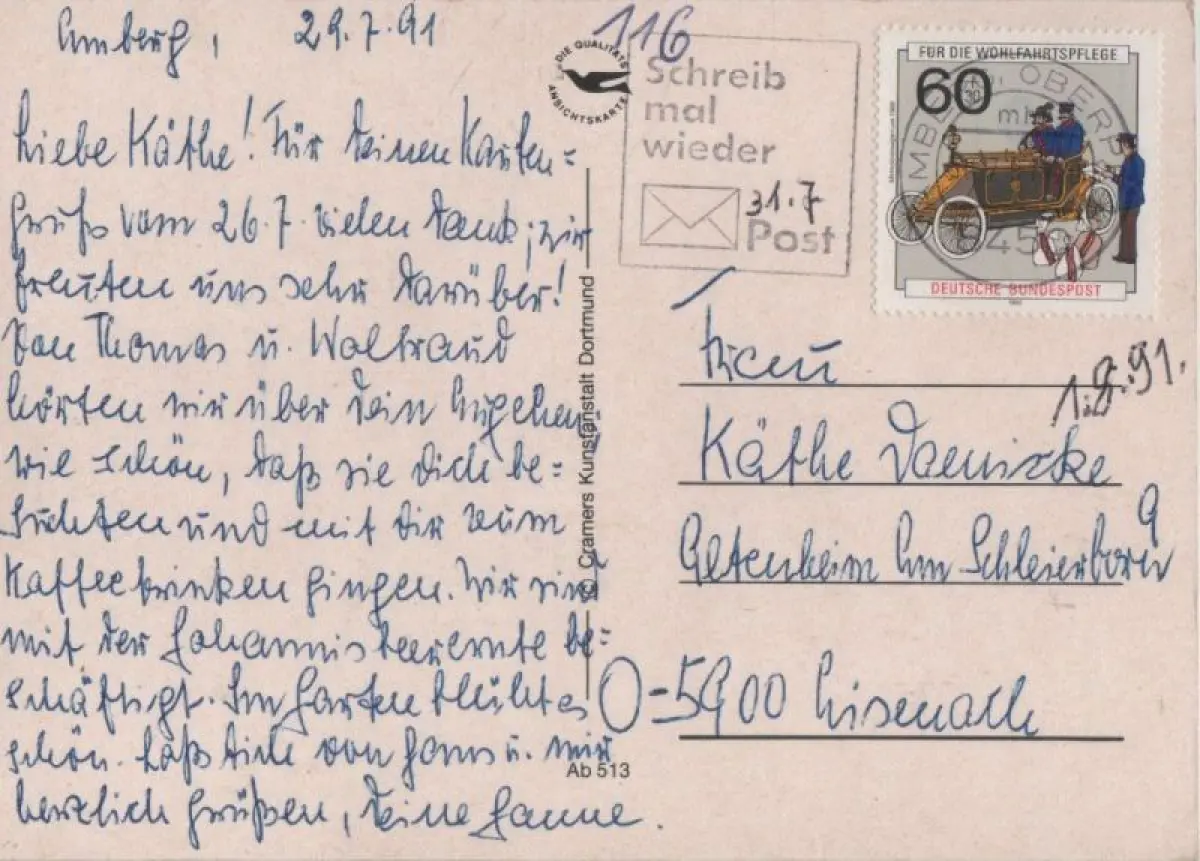 Amberg, 29.7.91
Liebe Käthe! Für Deinen Karten=
gruß vom 26.7. vielen Dank; wir
freuten uns sehr darüber!
Von Thomas u. Waltraud
hörten wir über Dein Ergehen;
wie schön, daß sie Dich be=
suchten und mit Dir zum
Kaffeetrinken gingen. Wir sind
mit der Johannisbeerernte be=
schäftigt. Im Garten blüht es
schön. Laß Dich von Hans u. mir
herzlich grüßen, Deine Hanne.
116
DIE QUALITÄTS
ANSICHTSKARTE
Schreib
mal
wieder
31.7
Post
FÜR DIE WOHLFAHRTSPFLEGE
60
DEUTSCHE BUNDESPOST
© Cramers Kunstanstalt Dortmund
Ab 513
Frau
1.8.91.
Käthe
Altenheim Am Schleierborn
9
O-5900 Eisenach